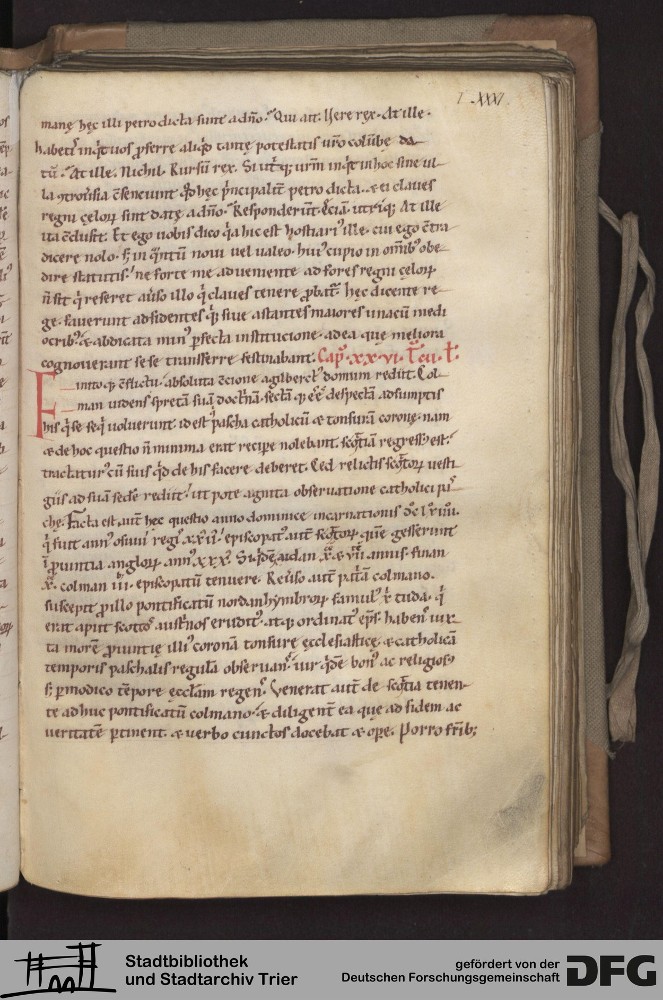 I . XXXI
manę hęc illi petro dicta sunt a dño. Qui ait. Vere rex. At ille.
habetis inq̇t uos ꝓferre aliq̇d tantę potestatis uṙo columbę da
tū. At ille. Nichil. Rursū rex. Si utq; uṙm inq̇t in hoc sine ul
la ꝯtrouersia c̄senciunt qd hęc p̄ncipalit̄ petro dicta. & ei claues
regni cęloꝝ sint datę a dño. Responderunt. &ciā utriq;. At ille
ita c̄clusit. Et ego uobis dico q̇a hic est hostiari᾽ ille. cui ego c̄tra
dicere nolo. s; in q̄ntū noui uel ualeo. hui᾽ cupio in om̄ib᾽ obe
dire statutis. ne forte me adueniente ad fores regni cęloꝝ
n̄ sit q̇ reseret. auerso illo q̇ claues tenere ꝓbat᾽. hęc dicente re
ge. fauerunt adsidentes q;. siue astantes maiores unacū medi
ocrib᾽. & abdicata min᾽ ꝑfecta institucione. ad ea que meliora
cognouerant sese transferre festinabant. Cap᾽. XX. VI.
Finito q; c̄flictu. absoluta c̄cione agilberct᾽ domum rediit. Col
man uidens spretā suā doctnā. sectā q; ēē despectā adsumptis
his q̇ se seq̇ uoluerunt. id est q̇ pascha catholicū & tonsurā coronę. nam
& de hoc questio n̄ minima erat recipe nolebant. scottiā regress᾽ est.
tractatur᾽ cū suis q̇d de his facere deberet. Ced relictis scottoꝝ uesti
giis ad suā sedē rediit. ut pote agnita obseruatione catholici pas
chę. Facta est aut̄ hęc questio anno dominice incarnationis dc̄ lxiiii.
q̇ fuit ann᾽ osuiu regis xxii᾽. episcopat᾽ aut̄ scottoꝝ quē gesserunt
ī ꝓuintia angloꝝ ann᾽ xxx. Siq̇dē aidan x. & vii annis. finan
x. colman iii. episcopatū tenuere. Reuerso aut̄ pat̄ā colmano.
suscepit ꝓ illo pontificatū nordanhymbroꝝ famul᾽ xp̄i tuda. q̇
erat aput scottos austrinos erudit᾽. atq; ordinat᾽ ep̄s. habens iux
ta morē ꝓuintię illi᾽ coronā tonsure ecclesiasticę. & catholicā
temporis paschalis regulā obseruans. uir q̇dē bon᾽ ac religios᾽
s; ꝑmodico tēpore ęcclam regens. Venerat aut̄ de scottia tenen
te adhuc pontificatū colmano. & diligent̄ ea quę ad fidem ac
ueritatē ꝑtinent. & verbo cunctos docebat & oꝑe. Porro frib;
Stadtbibliothek
und Stadtarchiv Trier
gefördert von der
Deutschen Forschungsgemeinschaft
DFG